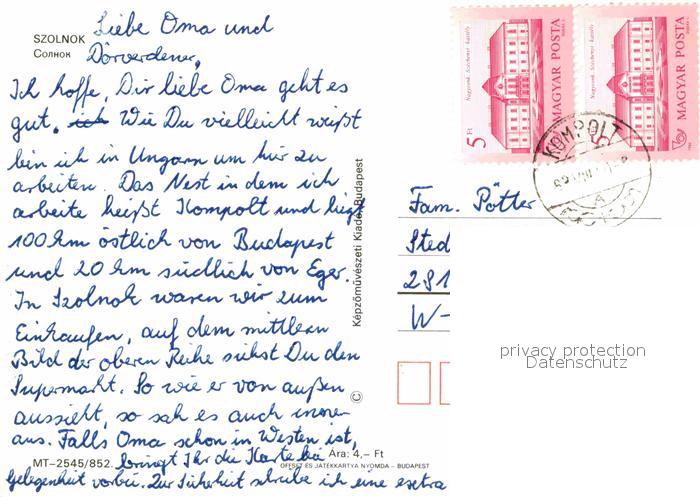 SZOLNOK
Солнок
Liebe Oma und
Dörverdener,
Ich hoffe, Dir liebe Oma geht es
gut. Wie Du vielleicht weißt
bin ich in Ungarn um hier zu
arbeiten. Das Nest in dem ich
arbeite heißt Kompolt und liegt
100 km östlich von Budapest
und 20 km südlich von Eger.
In Szolnok waren wir zum
Einkaufen, auf dem mittlern
Bild der oberen Reihe siehst Du den
Supermarkt. So wie er von außen
aussieht, so sah es auch innen
aus. Falls Oma schon in Westen ist,
bringt Ihr die Karte bei
Gelegenheit vorbei. Zur Sicherheit schreibe ich eine extra
MT-2545/852.
Ára: 4,– Ft
OFFSET ÉS JÁTÉKKÁRTYA NYOMDA – BUDAPEST
© Képzőművészeti Kiadó, Budapest
Nagycenk Széchenyi kastély
5 Ft
MAGYAR POSTA
MAGYAR POSTA
KOMPOLT
Fam. Pötter
Sted
281
W-
privacy protection
Datenschutz